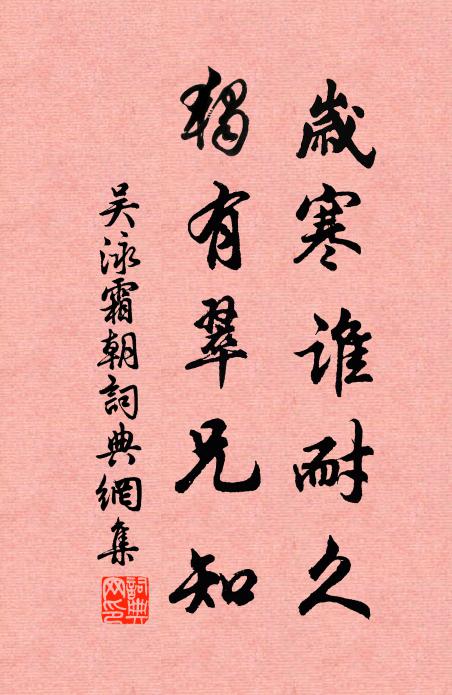 歲寒誰耐久
獨有翠兄知
吳泳霜朝詞典網集
詞典网印